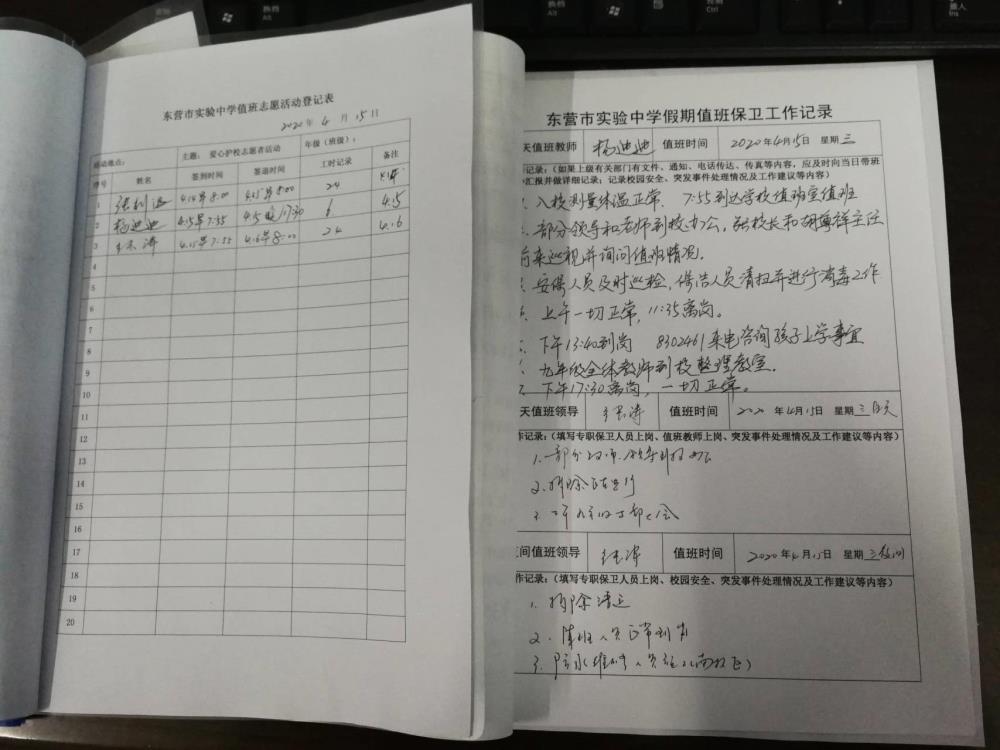 东营市实验中学值班志愿活动登记表
2020年 4 月 15 日
活动地点: 主题: 爱心护校志愿者活动 年级(班级):
序号 姓名 签到时间 签退时间 工时记录 备注
1 4.14早8:00 4.15早8:00 24
2 杨迪迪 4.15早7:55 4.15晚17:30 6 4.15
3 4.15早7:55 4.16早8:00 24 4.16
4
5
6
7
8
9
10
11
12
13
14
15
16
17
18
19
20
东营市实验中学假期值班保卫工作记录
天值班教师 杨迪迪 值班时间 2020年4月15日 星期三
记录:(如果上级有关部门有文件、通知、电话传达、传真等内容,应及时向当日带班
汇报并做详细记录;记录校园安全、突发事件处理情况及工作建议等内容)
1. 入校测量体温正常. 7:55到达学校值班室值班
部分领导和老师到校办公,张校长和胡尊祥主任
前来巡视并询问值班情况.
安保人员及时巡检,保洁人员清扫并进行消毒工作
上午一切正常,11:35离岗。
下午13:40到岗 8302461来电咨询孩子上学事宜
九年级全体教师到校整理教室.
下午17:30离岗,一切正常。
天值班领导 值班时间 2020年4月15日 星期三白天
作记录:(填写专职保卫人员上岗、值班教师上岗、突发事件处理情况及工作建议等内容)
1.一部分教师、领导到校办公
2.拆除正进行
间值班领导 值班时间 2020年4月15日 星期三夜间
作记录:(填写专职保卫人员上岗、校园安全、突发事件处理情况及工作建议等内容)
1. 拆除清运
2. 值班人员正常到岗
3.